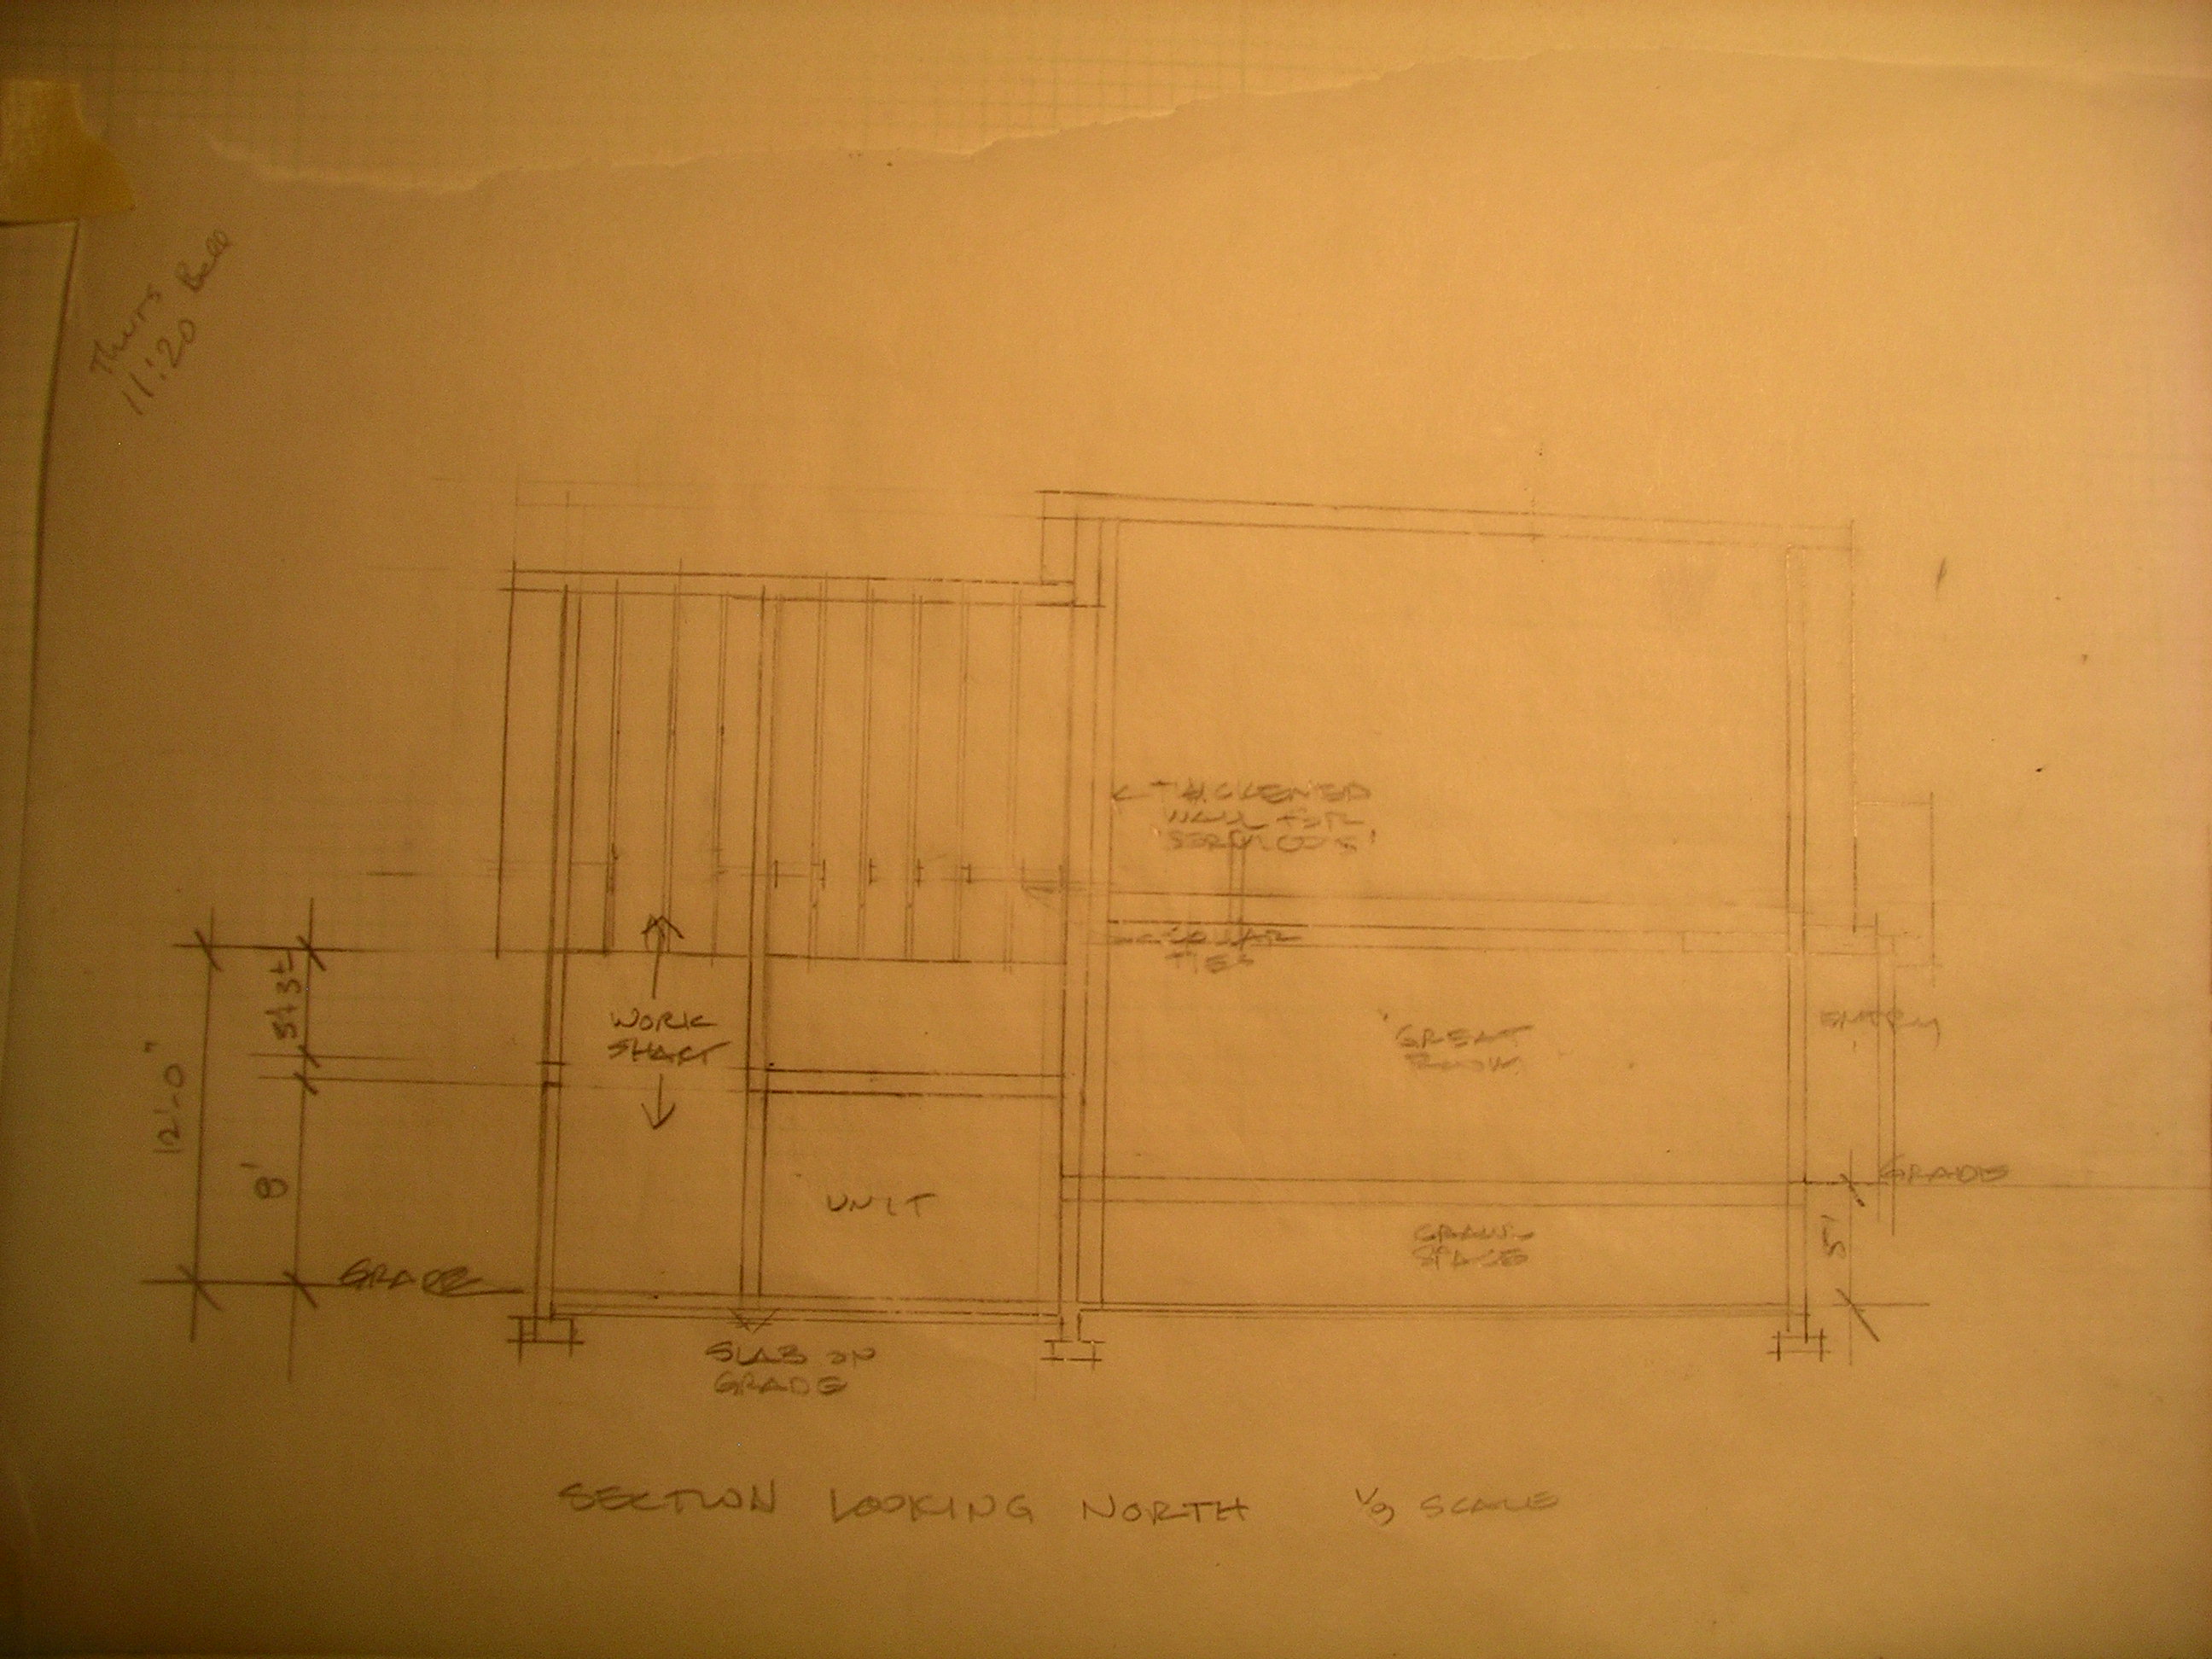 Thurs Bell
11:20
THICKENED
WALL FOR
"SERVICES"
COLLAR
TIES
WORK
SHAFT
"GREAT
ROOM"
ENTRY
12'-0"
8'
UNIT
GRADE
CRAWL
SPACE
5'
GRADE
SLAB ON
GRADE
SECTION LOOKING NORTH 1/8 SCALE